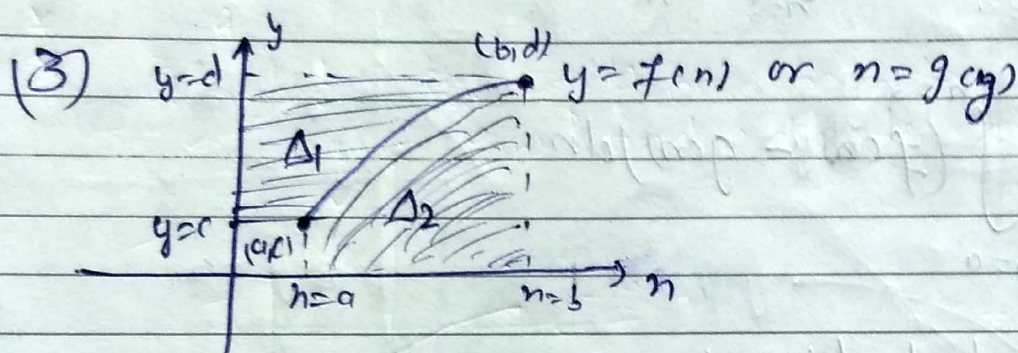 (3)
y
y=d
(b,d)
y = f(x) or x = g(y)
Δ1
Δ2
y=c
(a,c)
x=a
x=b
x